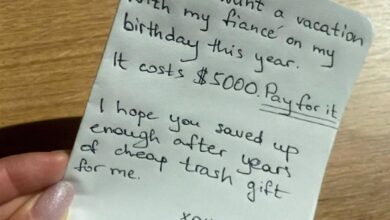 want a vacation
with my fiancé on my
birthday this year.
It costs $5000. Pay for it.
I hope you saved up
enough after years
of cheap trash gift
for me.